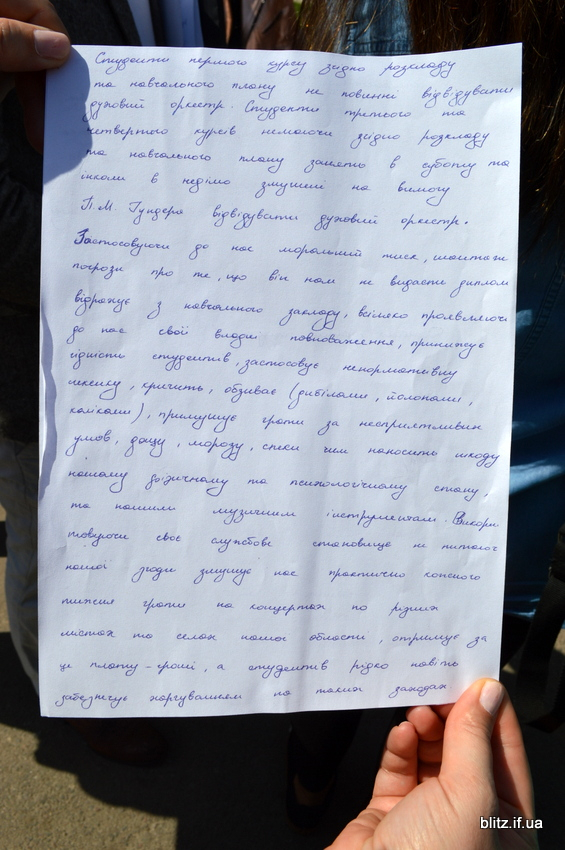 Студенти першого курсу згідно розкладу
та навчального плану не повинні відвідувати
духовий оркестр. Студенти третього та
четвертого курсів немаючи згідно розкладу
та навчального плану занять в суботу та
інколи в неділю змушені на вимогу
П.М. Гундера відвідувати духовий оркестр.
Застосовуючи до нас моральний тиск, шантаж
погрози про те, що він нам не видасть диплом
відражує з навчального закладу, всіляко проявляючи
до нас свої владні повноваження, принижує
гідність студентів, застосовує ненормативну
лексику, кричить, обзиває (дибілами, йолопами,
каліками), примушує грати за несприятливих
умов, дощу, морозу, спеки чим наносить шкоду
нашому фізичному та психологічному стану,
та нашим музичним інструментам. Викори
товуючи своє службове становище не питаючі
нашої згоди змушує нас практично кожного
тижня грати на концертах по різних
містах та селах нашої области, отримує за
це плату - гроші, а студентів рідко навіть
забезпечує харчуванням на таких заходах
blitz.if.ua